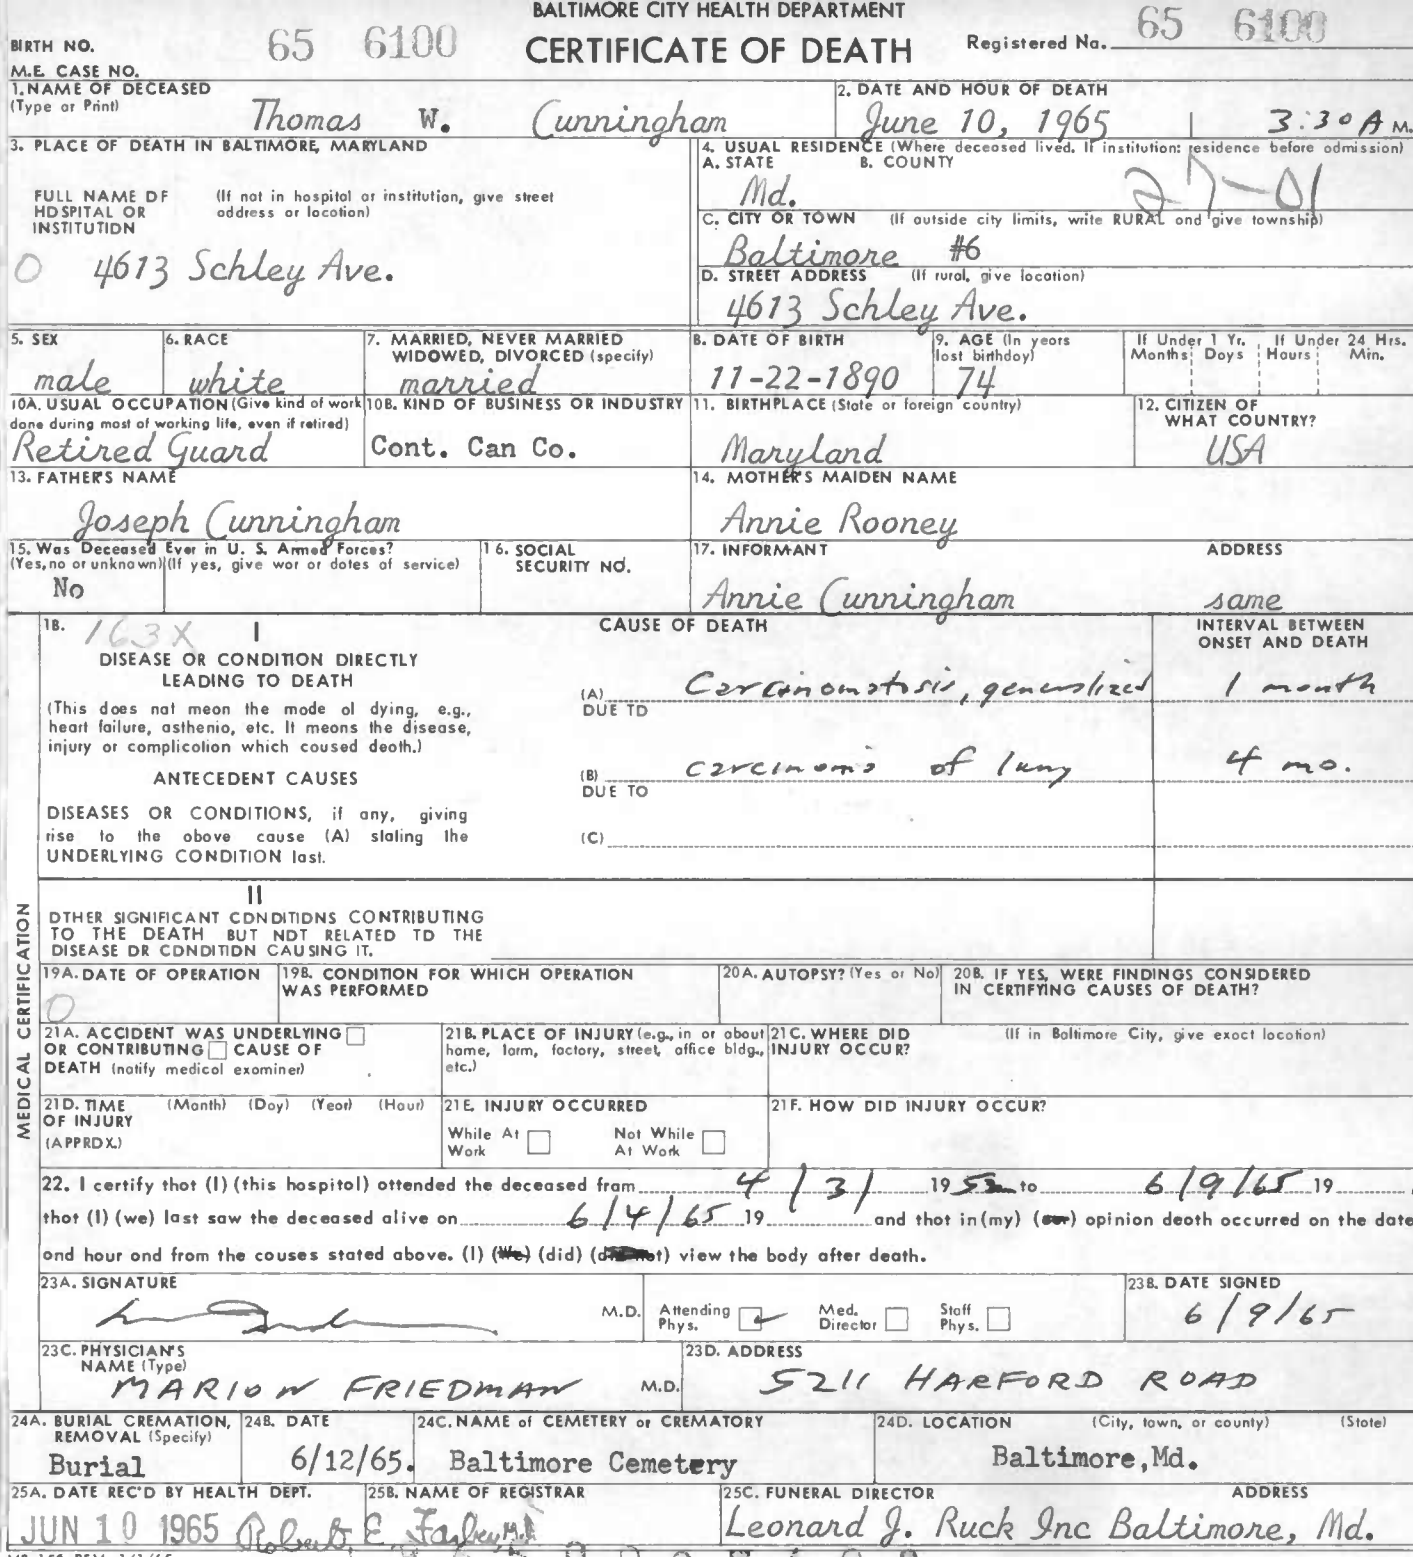 BALTIMORE CITY HEALTH DEPARTMENT
BIRTH NO. 65 6100 CERTIFICATE OF DEATH Registered No. 65 6100
M.E. CASE NO.
1. NAME OF DECEASED
(Type or Print) Thomas W. Cunningham
2. DATE AND HOUR OF DEATH
June 10, 1965 3:30 A M.
3. PLACE OF DEATH IN BALTIMORE, MARYLAND
FULL NAME OF HOSPITAL OR INSTITUTION (If not in hospital or institution, give street address or location)
0 4613 Schley Ave.
4. USUAL RESIDENCE (Where deceased lived. If institution: residence before admission)
A. STATE B. COUNTY
Md. 27-01
C. CITY OR TOWN (If outside city limits, write RURAL and give township)
Baltimore #6
D. STREET ADDRESS (If rural, give location)
4613 Schley Ave.
5. SEX
male
6. RACE
white
7. MARRIED, NEVER MARRIED
WIDOWED, DIVORCED (specify)
married
8. DATE OF BIRTH
11-22-1890
9. AGE (In years
last birthday)
74
If Under 1 Yr. If Under 24 Hrs.
Months Days Hours Min.
10A. USUAL OCCUPATION (Give kind of work
done during most of working life, even if retired)
Retired Guard
10B. KIND OF BUSINESS OR INDUSTRY
Cont. Can Co.
11. BIRTHPLACE (State or foreign country)
Maryland
12. CITIZEN OF
WHAT COUNTRY?
USA
13. FATHER'S NAME
Joseph Cunningham
14. MOTHER'S MAIDEN NAME
Annie Rooney
15. Was Deceased Ever in U. S. Armed Forces?
(Yes, no or unknown) (If yes, give war or dates of service)
No
16. SOCIAL
SECURITY NO.
17. INFORMANT ADDRESS
Annie Cunningham same
18. 163X I CAUSE OF DEATH INTERVAL BETWEEN
ONSET AND DEATH
DISEASE OR CONDITION DIRECTLY
LEADING TO DEATH
(This does not mean the mode of dying, e.g.,
heart failure, asthenia, etc. It means the disease,
injury or complication which caused death.)
(A) Carcinomatosis, generalized 1 month
DUE TO
ANTECEDENT CAUSES
(B) carcinoma of lung 4 mo.
DUE TO
DISEASES OR CONDITIONS, if any, giving
rise to the above cause (A) stating the
UNDERLYING CONDITION last.
(C)
II
OTHER SIGNIFICANT CONDITIONS CONTRIBUTING
TO THE DEATH BUT NOT RELATED TO THE
DISEASE OR CONDITION CAUSING IT.
MEDICAL CERTIFICATION
19A. DATE OF OPERATION
0
19B. CONDITION FOR WHICH OPERATION
WAS PERFORMED
20A. AUTOPSY? (Yes or No)
20B. IF YES, WERE FINDINGS CONSIDERED
IN CERTIFYING CAUSES OF DEATH?
21A. ACCIDENT WAS UNDERLYING
OR CONTRIBUTING CAUSE OF
DEATH (notify medical examiner)
21B. PLACE OF INJURY (e.g., in or about
home, farm, factory, street, office bldg.,
etc.)
21C. WHERE DID (If in Baltimore City, give exact location)
INJURY OCCUR?
21D. TIME (Month) (Day) (Year) (Hour)
OF INJURY
(APPROX.)
21E. INJURY OCCURRED
While At Work Not While At Work
21F. HOW DID INJURY OCCUR?
22. I certify that (I) (this hospital) attended the deceased from 4/3/ 19 to 6/9/65 19
that (I) (we) last saw the deceased alive on 6/4/65 19 and that in (my) (our) opinion death occurred on the date
and hour and from the causes stated above. (I) (We) (did) (did not) view the body after death.
23A. SIGNATURE
M.D. Attending Phys. Med. Director Staff Phys.
23B. DATE SIGNED
6/9/65
23C. PHYSICIAN'S
NAME (Type)
MARION FRIEDMAN M.D.
23D. ADDRESS
5211 HARFORD ROAD
24A. BURIAL CREMATION,
REMOVAL (Specify)
Burial
24B. DATE
6/12/65.
24C. NAME of CEMETERY or CREMATORY
Baltimore Cemetery
24D. LOCATION (City, town, or county) (State)
Baltimore, Md.
25A. DATE REC'D BY HEALTH DEPT.
JUN 10 1965
25B. NAME OF REGISTRAR
Robert E. Farber, M.D.
25C. FUNERAL DIRECTOR ADDRESS
Leonard J. Ruck Inc Baltimore, Md.